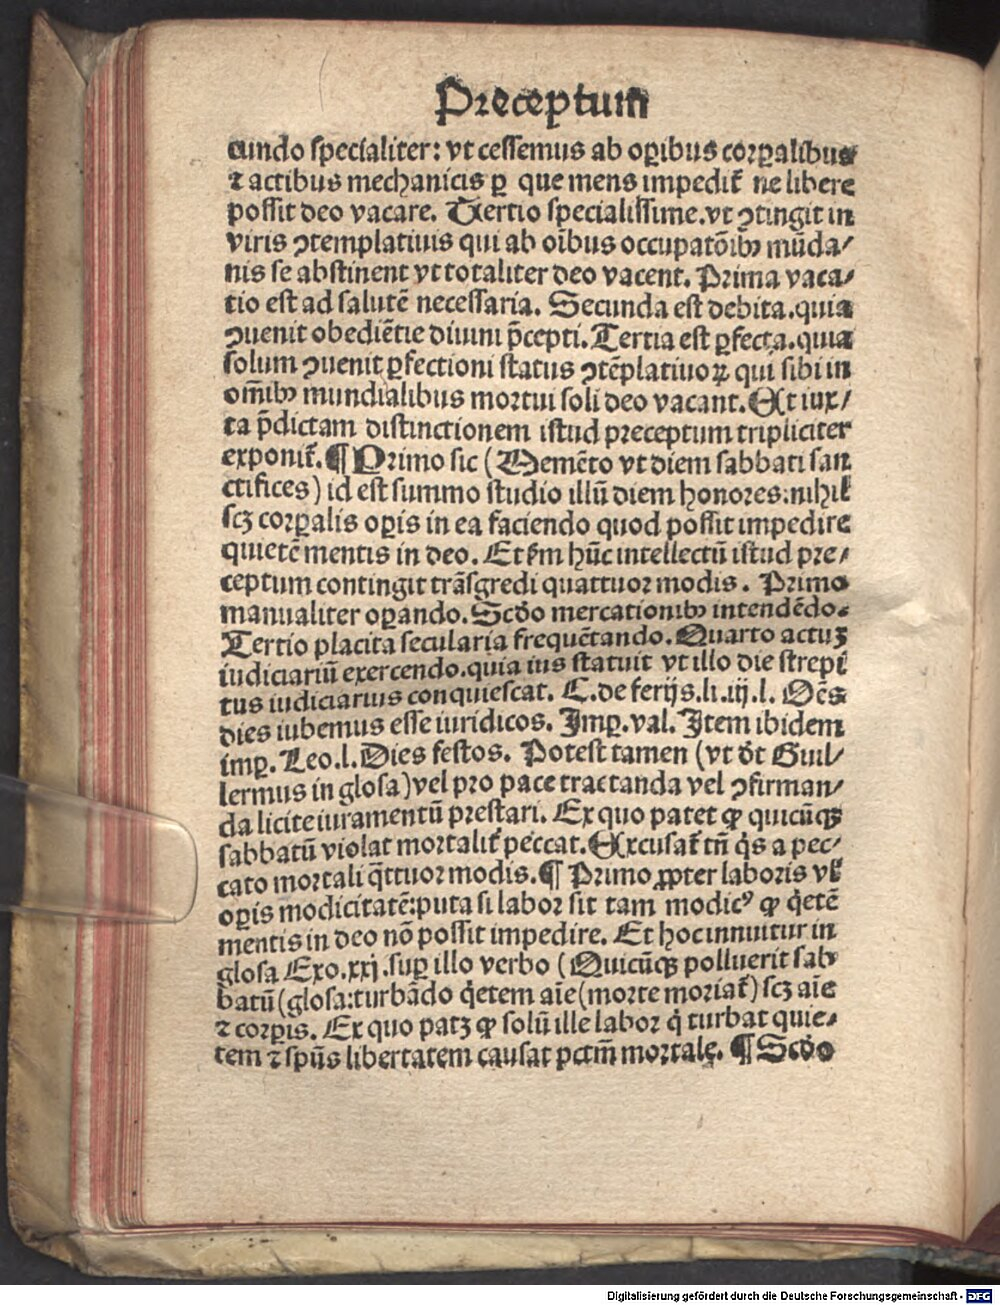 Preceptum
cundo specialiter: vt cessemus ab oꝑibus corꝑalibus
⁊ actibus mechanicis ꝑ que mens impedit᷑ ne libere
possit deo vacare. Tertio specialissime.vt ꝯtingit in
viris ꝯtemplatiuis qui ab oĩbus occupatõibꝰ mũda/
nis se abstinent vt totaliter deo vacent. Prima vaca/
tio est ad salutẽ necessaria. Secunda est debita.quia
ꝯuenit obediẽtie diuini p̃cepti. Tertia est ꝑfecta.quia
solum ꝯuenit ꝑfectioni status ꝯtẽplatiuoꝝ qui sibi in
om̃ibꝰ mundialibus mortui soli deo vacant. Et iux/
ta p̃dictam distinctionem istud preceptum tripliciter
exponit᷑. ¶ Primo sic (Memẽto vt diem sabbati san
ctifices) id est summo studio illũ diem honores: nihil̃
scꝫ corꝑalis oꝑis in ea faciendo quod possit impedire
quietẽ mentis in deo. Et ẜm hũc intellectũ istud pre/
ceptum contingit trãsgredi quattuor modis. Primo
manualiter oꝑando. Scḋo mercationibꝰ intendẽdo.
Tertio placita secularia frequẽtando. Quarto actuꝫ
iudiciariũ exercendo.quia ius statuit vt illo die strepi
tus iudiciarius conquiescat. C. de ferijs.li.iij.l. Oẽs
dies iubemus esse iuridicos. Imꝑ.val. Item ibidem
imꝑ. Leo.l. Dies festos. Potest tamen (vt dr̃t Guil/
lermus in glosa) vel pro pace tractanda vel ꝯfirman/
da licite iuramentũ prestari. Ex quo patet ꝙ quicũqꝫ
sabbatũ violat mortalit᷑ peccat. Excusat᷑ tñ q̇s a pec/
cato mortali q̃ttuor modis. ¶ Primo ꝓpter laboris vl̃
oꝑis modicitatẽ: puta si labor sit tam modicꝰ ꝙ q̇etẽ
mentis in deo nõ possit impedire. Et hoc innuitur in
glosa Exo.xxj.suꝑ illo verbo (Quicũqꝫ polluerit sab
batũ (glosa: turbãdo q̇etem aĩe (morte moriat᷑) scꝫ aĩe
⁊ corꝑis. Ex quo patꝫ ꝙ solũ ille labor q̇ turbat quie/
tem ⁊ sp̃us libertatem causat pctm̃ mortale. ¶ Scḋo
Digitalisierung gefördert durch die Deutsche Forschungsgemeinschaft - DFG